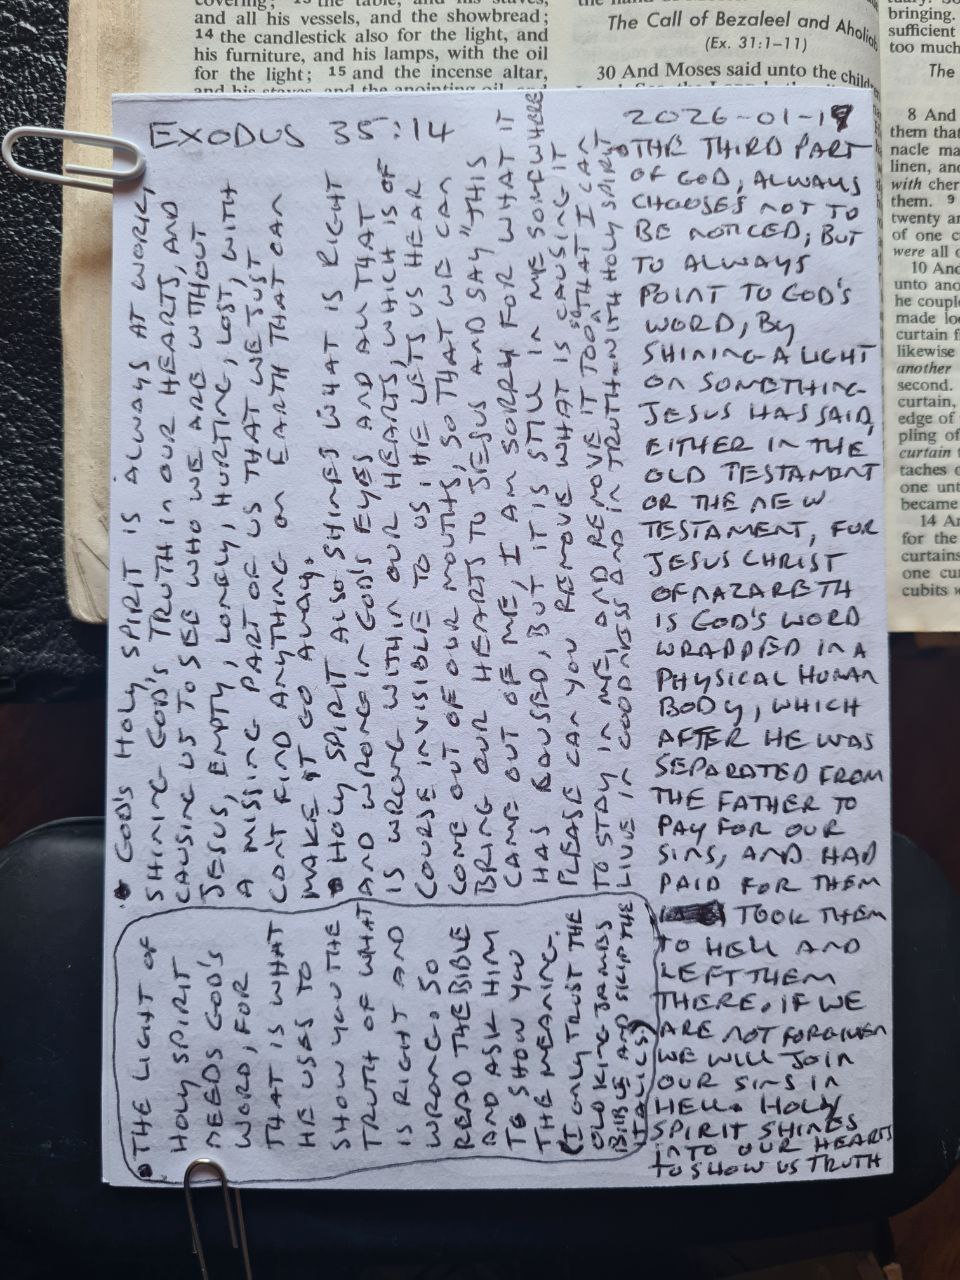 covering; 13 the table, and his staves,
and all his vessels, and the showbread;
14 the candlestick also for the light, and
his furniture, and his lamps, with the oil
for the light; 15 and the incense altar,
and his staves, and the anointing oil, and
The Call of Bezaleel and Aholiab
(Ex. 31:1–11)
30 And Moses said unto the children
bringing.
sufficient
too much
The
8 And
them that
nacle ma
linen, and
with cher
them. 9
twenty an
of one c
were all o
10 And
unto ano
he couple
made loo
curtain f
likewise
another
second.
curtain,
edge of
pling of
curtain
taches o
one unt
became
14 An
for the
curtains
one cur
cubits w
EXODUS 35:14
2026-01-19
• GOD'S HOLY SPIRIT IS ALWAYS AT WORK,
SHINING GOD'S TRUTH IN OUR HEARTS, AND
CAUSING US TO SEE WHO WE ARE WITHOUT
JESUS, EMPTY, LONELY, HURTING, LOST, WITH
A MISSING PART OF US THAT WE JUST
CAN'T FIND ANYTHING ON EARTH THAT CAN
MAKE IT GO AWAY.
• HOLY SPIRIT ALSO SHINES WHAT IS RIGHT
AND WRONG IN GOD'S EYES AND ALL THAT
IS WRONG WITHIN OUR HEARTS, WHICH IS OF
COURSE INVISIBLE TO US. HE LETS US HEAR
COME OUT OF OUR MOUTHS, SO THAT WE CAN
BRING OUR HEARTS TO JESUS AND SAY "THIS
CAME OUT OF ME, I AM SORRY FOR WHAT IT
HAS CAUSED, BUT IT IS STILL IN ME SOMEWHERE
PLEASE CAN YOU REMOVE WHAT IS CAUSING IT
TO STAY IN ME, AND REMOVE IT TOO SO THAT I CAN
LIVE IN GOODNESS AND IN TRUTH WITH HOLY SPIRIT
• THE LIGHT OF
HOLY SPIRIT
NEEDS GOD'S
WORD, FOR
THAT IS WHAT
HE USES TO
SHOW YOU THE
TRUTH OF WHAT
IS RIGHT AND
WRONG. SO
READ THE BIBLE
AND ASK HIM
TO SHOW YOU
THE MEANING.
(I ONLY TRUST THE
OLD KING JAMES
BIBLE AND SKIP THE
ITALICS)
• THE THIRD PART
OF GOD, ALWAYS
CHOOSES NOT TO
BE NOTICED, BUT
TO ALWAYS
POINT TO GOD'S
WORD, BY
SHINING A LIGHT
ON SOMETHING
JESUS HAS SAID,
EITHER IN THE
OLD TESTAMENT
OR THE NEW
TESTAMENT, FOR
JESUS CHRIST
OF NAZARETH
IS GOD'S WORD
WRAPPED IN A
PHYSICAL HUMAN
BODY, WHICH
AFTER HE WAS
SEPARATED FROM
THE FATHER TO
PAY FOR OUR
SINS, AND HAD
PAID FOR THEM
TOOK THEM
TO HELL AND
LEFT THEM
THERE. IF WE
ARE NOT FORGIVEN
WE WILL JOIN
OUR SINS IN
HELL. HOLY
SPIRIT SHINES
INTO OUR HEARTS
TO SHOW US TRUTH